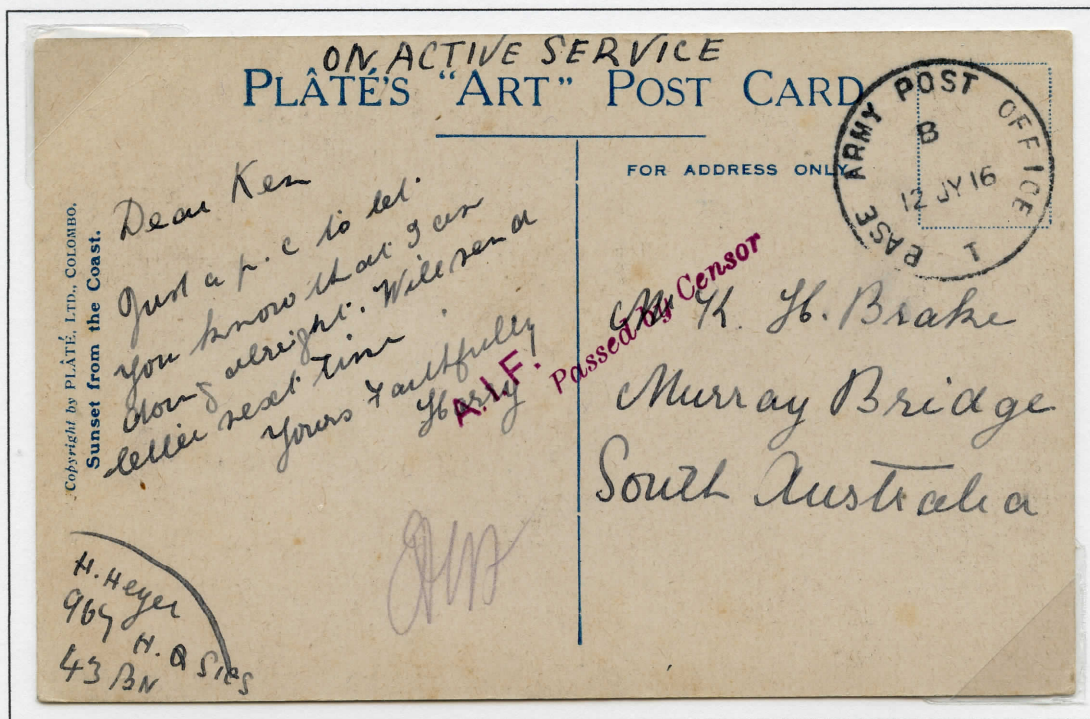 ON ACTIVE SERVICE
PLÂTÉ'S "ART" POST CARD
FOR ADDRESS ONLY
BASE ARMY POST OFFICE
B
12 JY 16
1
Copyright by PLÂTÉ, LTD., COLOMBO.
Sunset from the Coast.
Dear Ken
Just a p.c to let
you know that I am
doing alreight. Will send
letter next time.
Yours Faithfully
Harry
A.I.F.
Passed by Censor
Mr K. H. Brake
Murray Bridge
South Australia
H. Heyer
969
H. Q SIGS
43 BN